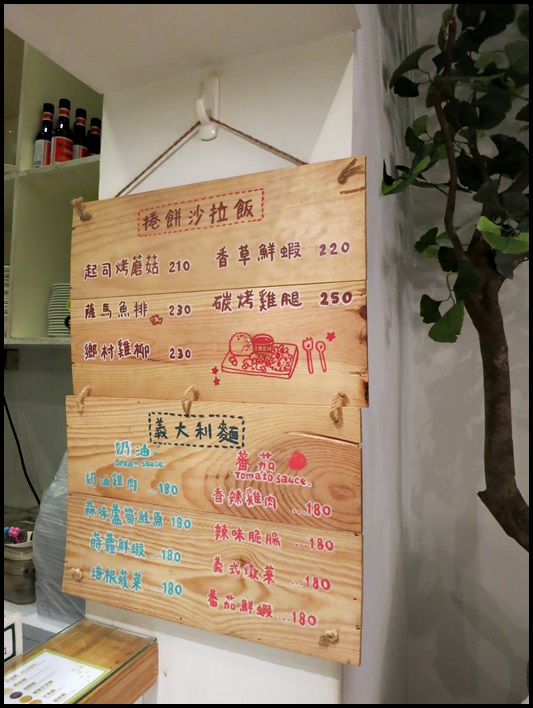 捲餅沙拉飯
起司烤蘑菇 210
香草鮮蝦 220
薩馬魚排 230
碳烤雞腿 250
鄉村雞柳 230
義大利麵
奶油
Cream sauce.
奶油雞肉 ...180
蒜味蘆筍鮭魚 180
蒔蘿鮮蝦 180
培根蔬菜 180
蕃茄
Tomato sauce.
香辣雞肉 ...180
辣味脆腸 ...180
義式燉菜 ...180
番茄鮮蝦 ...180